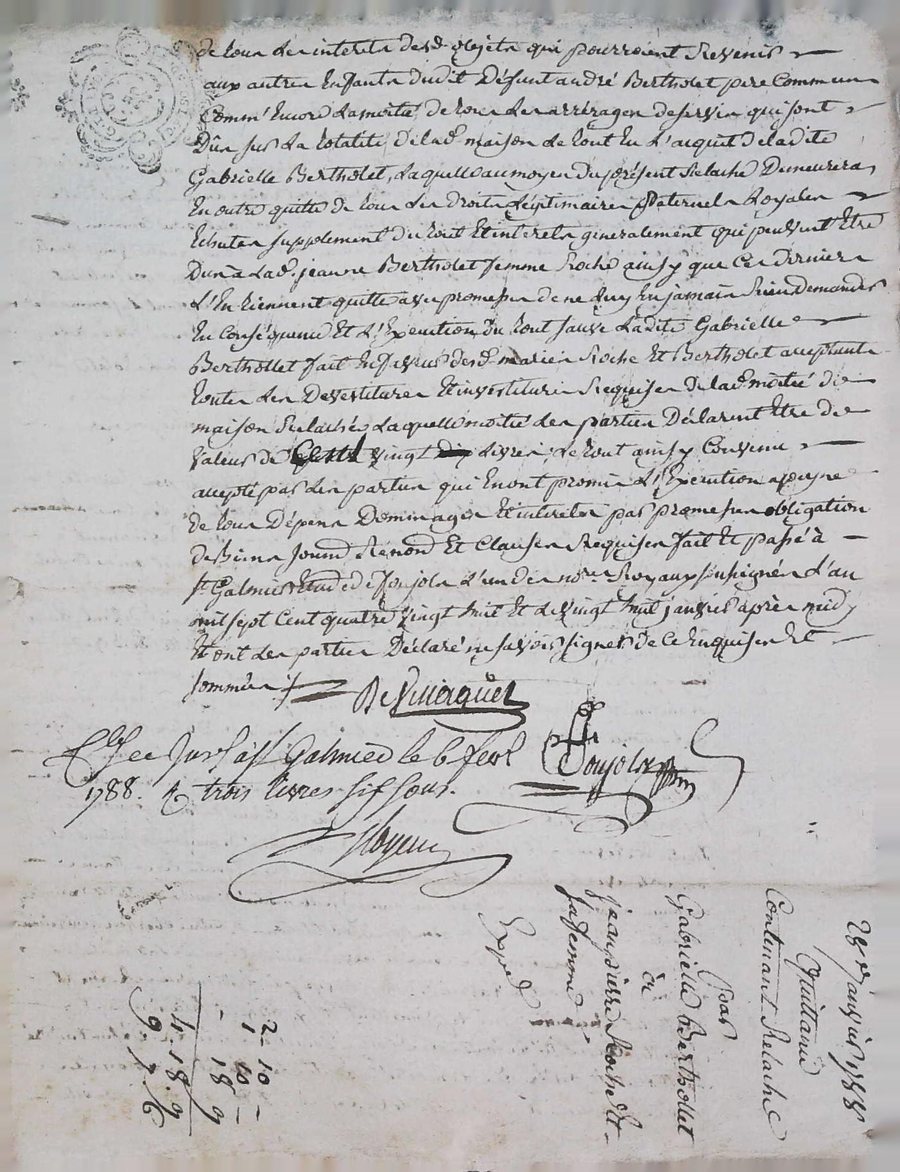 de tous les interets desd. objets qui pourroient Revenir
aux autres Enfants dudit Défunt andré Bertholet pere Commun
Comm' Encord la moitié de tous les arrérages de servis qui sont
Dûs sur la totalité de lad. maison le tout En l'acquit de ladite
Gabrielle Bertholet, Laquelle au moyen du présent Relaché Demeurera
En outre quitte de tous les droits Légitimaires Paternels Royales
Echutes supplément du tout Et interets généralement qui peuvent Etre
Dus a Lad. jeanne Bertholet femme Roche ainsy que Ces Derniers
L'En tiennent quitte avec promesse de ne luy En jamais Rien demander
En Conséquence Et L'Execution du tout sauve Ladite Gabrielle
Berthollet fait En faveur desd. mariés Roche Et Bertholet acceptants
toutes les Devestitures Et investitures Requises de lad. moitié de
maison Relachée Laquelle moitié les parties Déclarent Etre de
valeur de vingt livres le tout ainsy Convenu
accepté par les parties qui En ont promis L'Exécution a peyne
de tous Dépens Dommages Et interets par promesses obligation
de Biens Renond Et Clauses Requises fait Et passé à
St Galmier Etude de foujols L'un des nores Royaux soussignés L'an
mil sept Cent quatre vingt huit Et le vingt huit janvier après midy
Et ont les parties Déclaré ne savoir signer de Ce Enquises Et
sommées
foujols
à St Galmier le 6 fevr
1788. trois livres six sous.
28 janvier 1788
Quittance
Contenant Relache
par
Gabrielle Berthollet
à
jean pierre Roche Et
sa femme
Exped
2 - 10 -
1 - 10 -
- 18 9
4. 18. 9
9. 7. 6